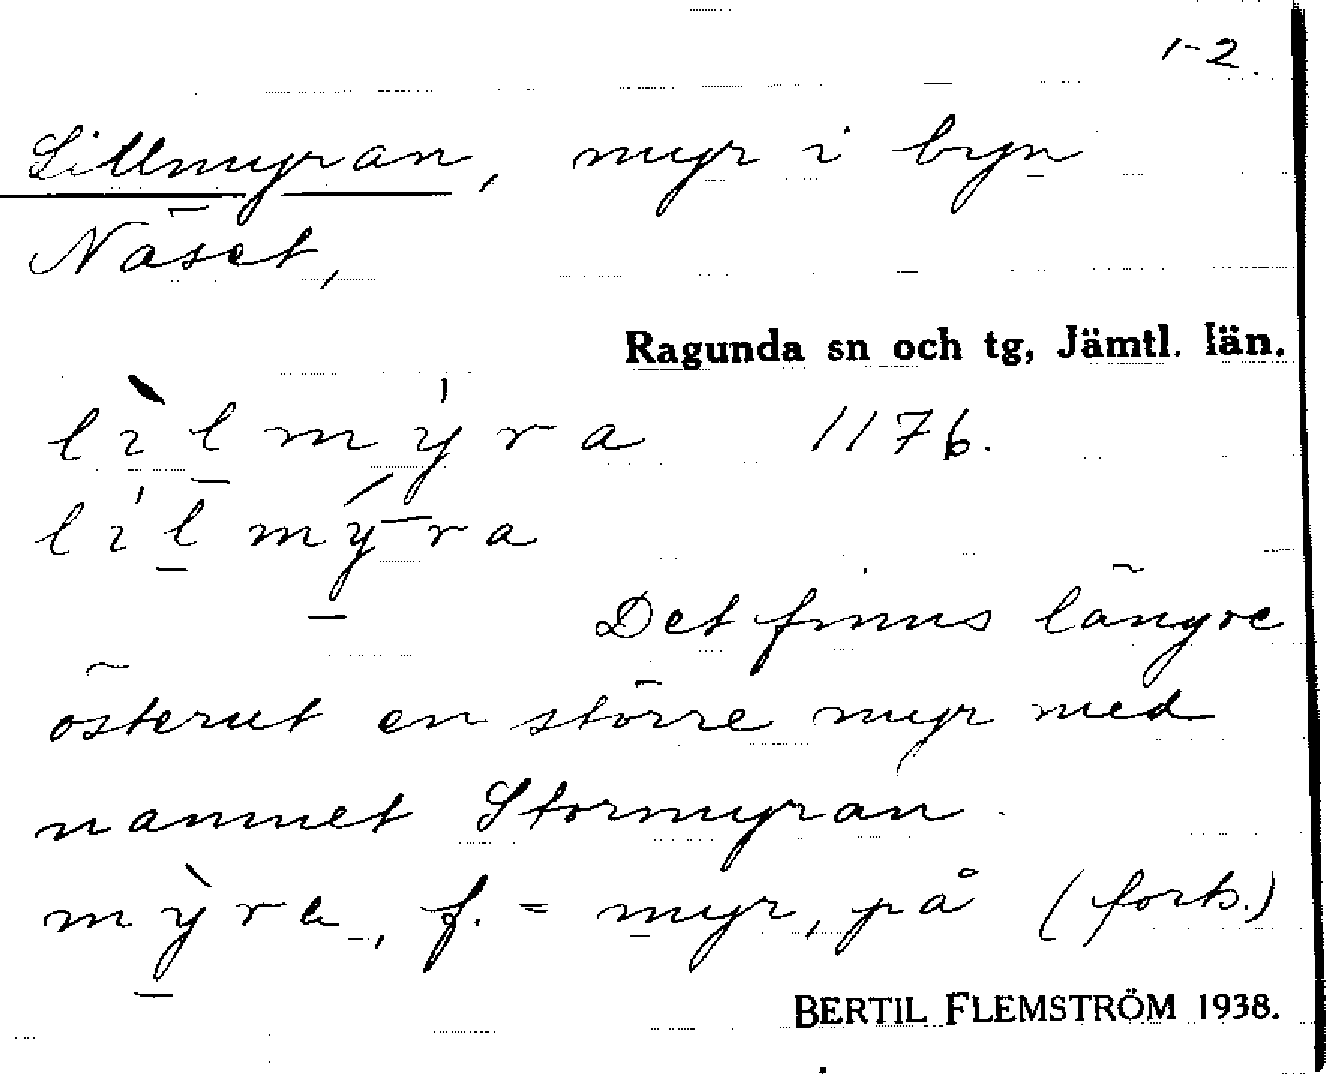 1-2.
Lillmyran, myr i byn
Näset,
Ragunda sn och tg, Jämtl. län.
lìlmýra 1176.
lílmýra
Det finns längre
österut en större myr med
namnet Stormyran.
mỳra, f. = myr, på (forts.)
BERTIL FLEMSTRÖM 1938.